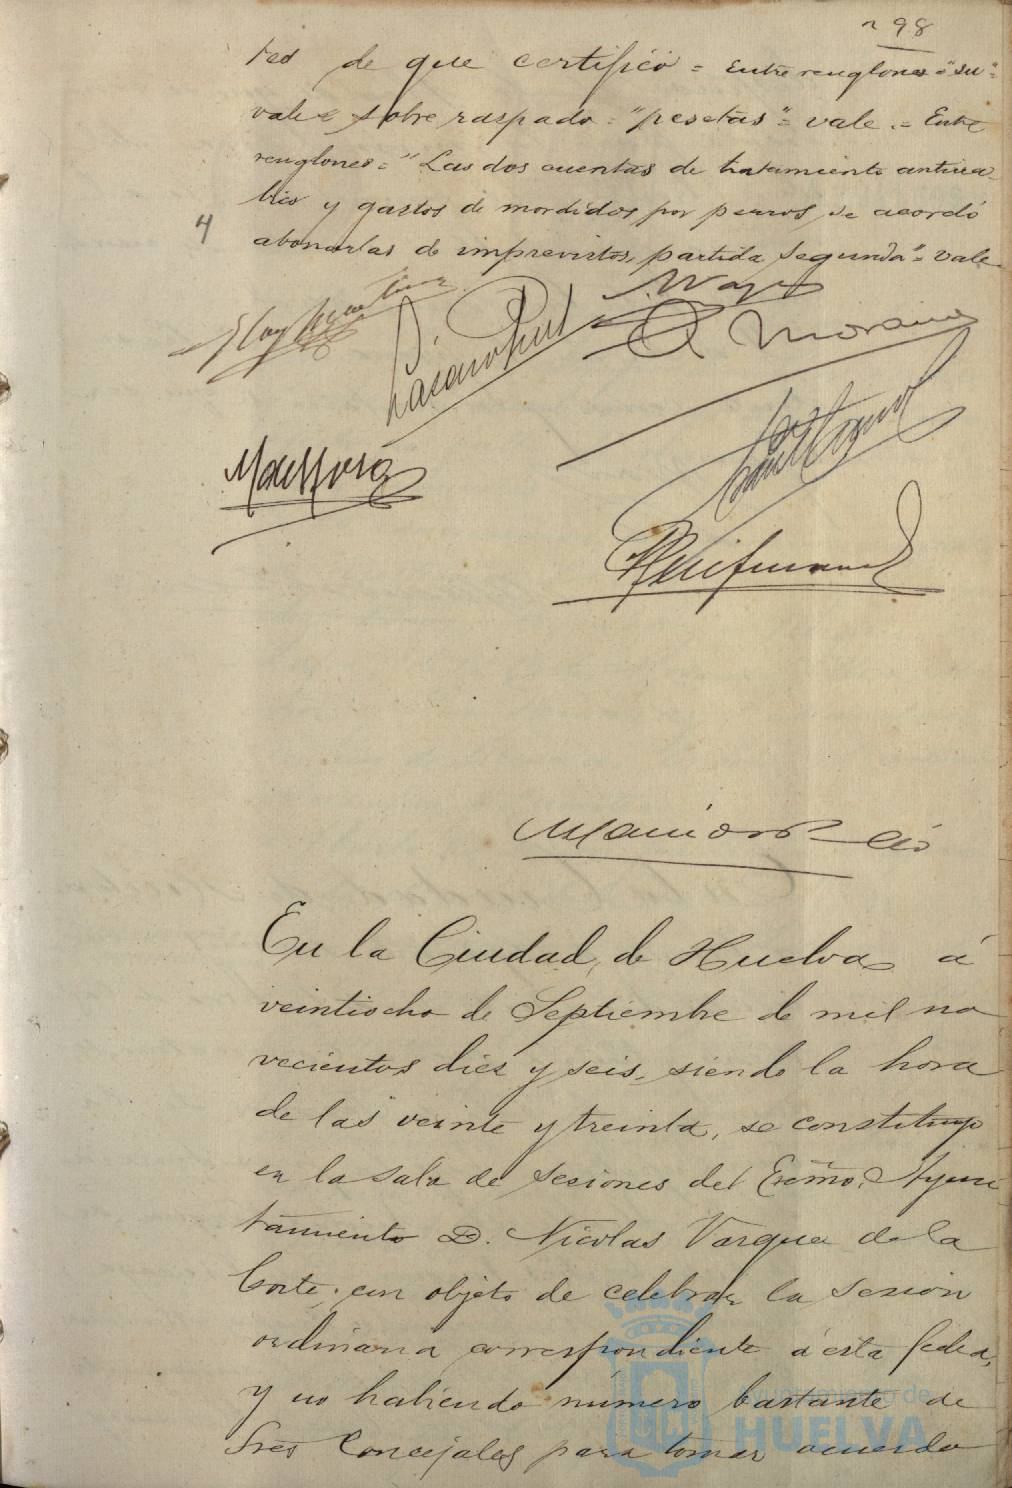 98
tes de que certifico = Entre renglones = "su" =
vale = sobre raspado = "pesetas" = vale. = Entre
renglones = "Las dos cuentas de tratamiento antirra-
bico y gastos de mordidos por perros, se acordó
4 abonarlas de imprevistos, partida segunda" = vale
Morano
En la Ciudad de Huelva á
veintiocho de Septiembre de mil no
vecientos diez y seis, siendo la hora
de las veinte y treinta, se constituyo
en la sala de sesiones del Excmo. Ayun
tamiento D. Nicolas Vazquez de la
Corte, con objeto de celebrar la sesion
ordinaria correspondiente á esta fecha,
y no habiendo número bastante de
Sres Concejales para tomar acuerdo
Ayuntamiento de
HUELVA